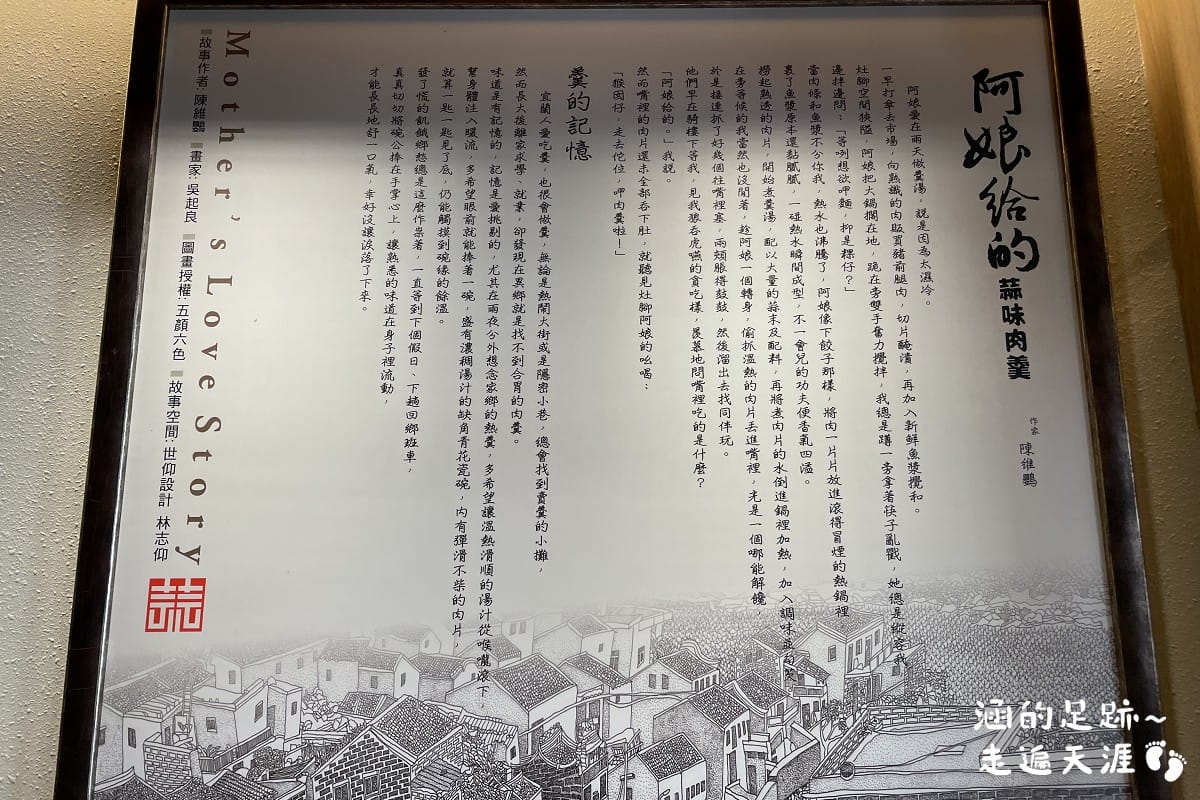 阿娘給的蒜味肉羹
作家 陳維鸚
阿娘愛在雨天做羹湯,說是因為太濕冷。
一早打傘去市場,向熟識的肉販買豬前腿肉,切片醃漬,再加入新鮮魚漿攪和。
灶腳空間狹隘,阿娘把大鍋擱在地,跪在旁雙手奮力攪拌,我總是蹲一旁拿著筷子亂戳,她總是縱容我
邊拌邊問:「等咧想欲呷麵,抑是粿仔?」
當肉條和魚漿不分你我,熱水也沸騰了,阿娘像下餃子那樣,將肉一片片放進滾得冒煙的熱鍋裡
裹了魚漿原本還黏膩膩,一碰熱水瞬間成型,不一會兒的功夫便香氣四溢。
撈起熟透的肉片,開始煮羹湯,配以大量的蒜末及配料,再將煮肉片的水倒進鍋裡加熱,加入調味並勾芡
在旁等候的我當然也沒閒著,趁阿娘一個轉身,偷抓溫熱的肉片丟進嘴裡,光是一個哪能解饞,
於是接連抓了好幾個往嘴裡塞,兩頰脹得鼓鼓,然後溜出去找同伴玩。
他們早在騎樓下等我,見我狼吞虎嚥的貪吃樣,羨慕地問嘴裡吃的是什麼?
「阿娘給的。」我說。
然而嘴裡的肉片還未全部吞下肚,就聽見灶腳阿娘的吆喝:
「猴囡仔,走去佗位,呷肉羹啦!」
羹的記憶
宜蘭人愛吃羹,也很會做羹,無論是熱鬧大街或是隱密小巷,總會找到賣羹的小攤,
然而長大後離家求學、就業,卻發現在異鄉就是找不到合胃的肉羹。
味道是有記憶的,記憶是愛挑剔的,尤其在雨夜分外想念家鄉的熱羹,多希望讓溫熱滑順的湯汁從喉嚨滾下,
幫身體注入暖流,多希望眼前就能捧著一碗,盛有濃稠湯汁的缺角青花瓷碗,內有彈滑不柴的肉片,
就算一匙一匙見了底,仍能觸摸到碗緣的餘溫。
發了慌的飢餓鄉愁總是這麼作祟著,一直等到下個假日、下趟回鄉班車,
真真切切將碗公捧在手掌心上,讓熟悉的味道在身子裡流動,
才能長長地舒一口氣,幸好沒讓淚落了下來。
Mother's Love Story
故事作者:陳維鸚 畫家:吳起良 圖畫授權:五顏六色 故事空間:世仰設計 林志仰
涵的足跡~
走遍天涯